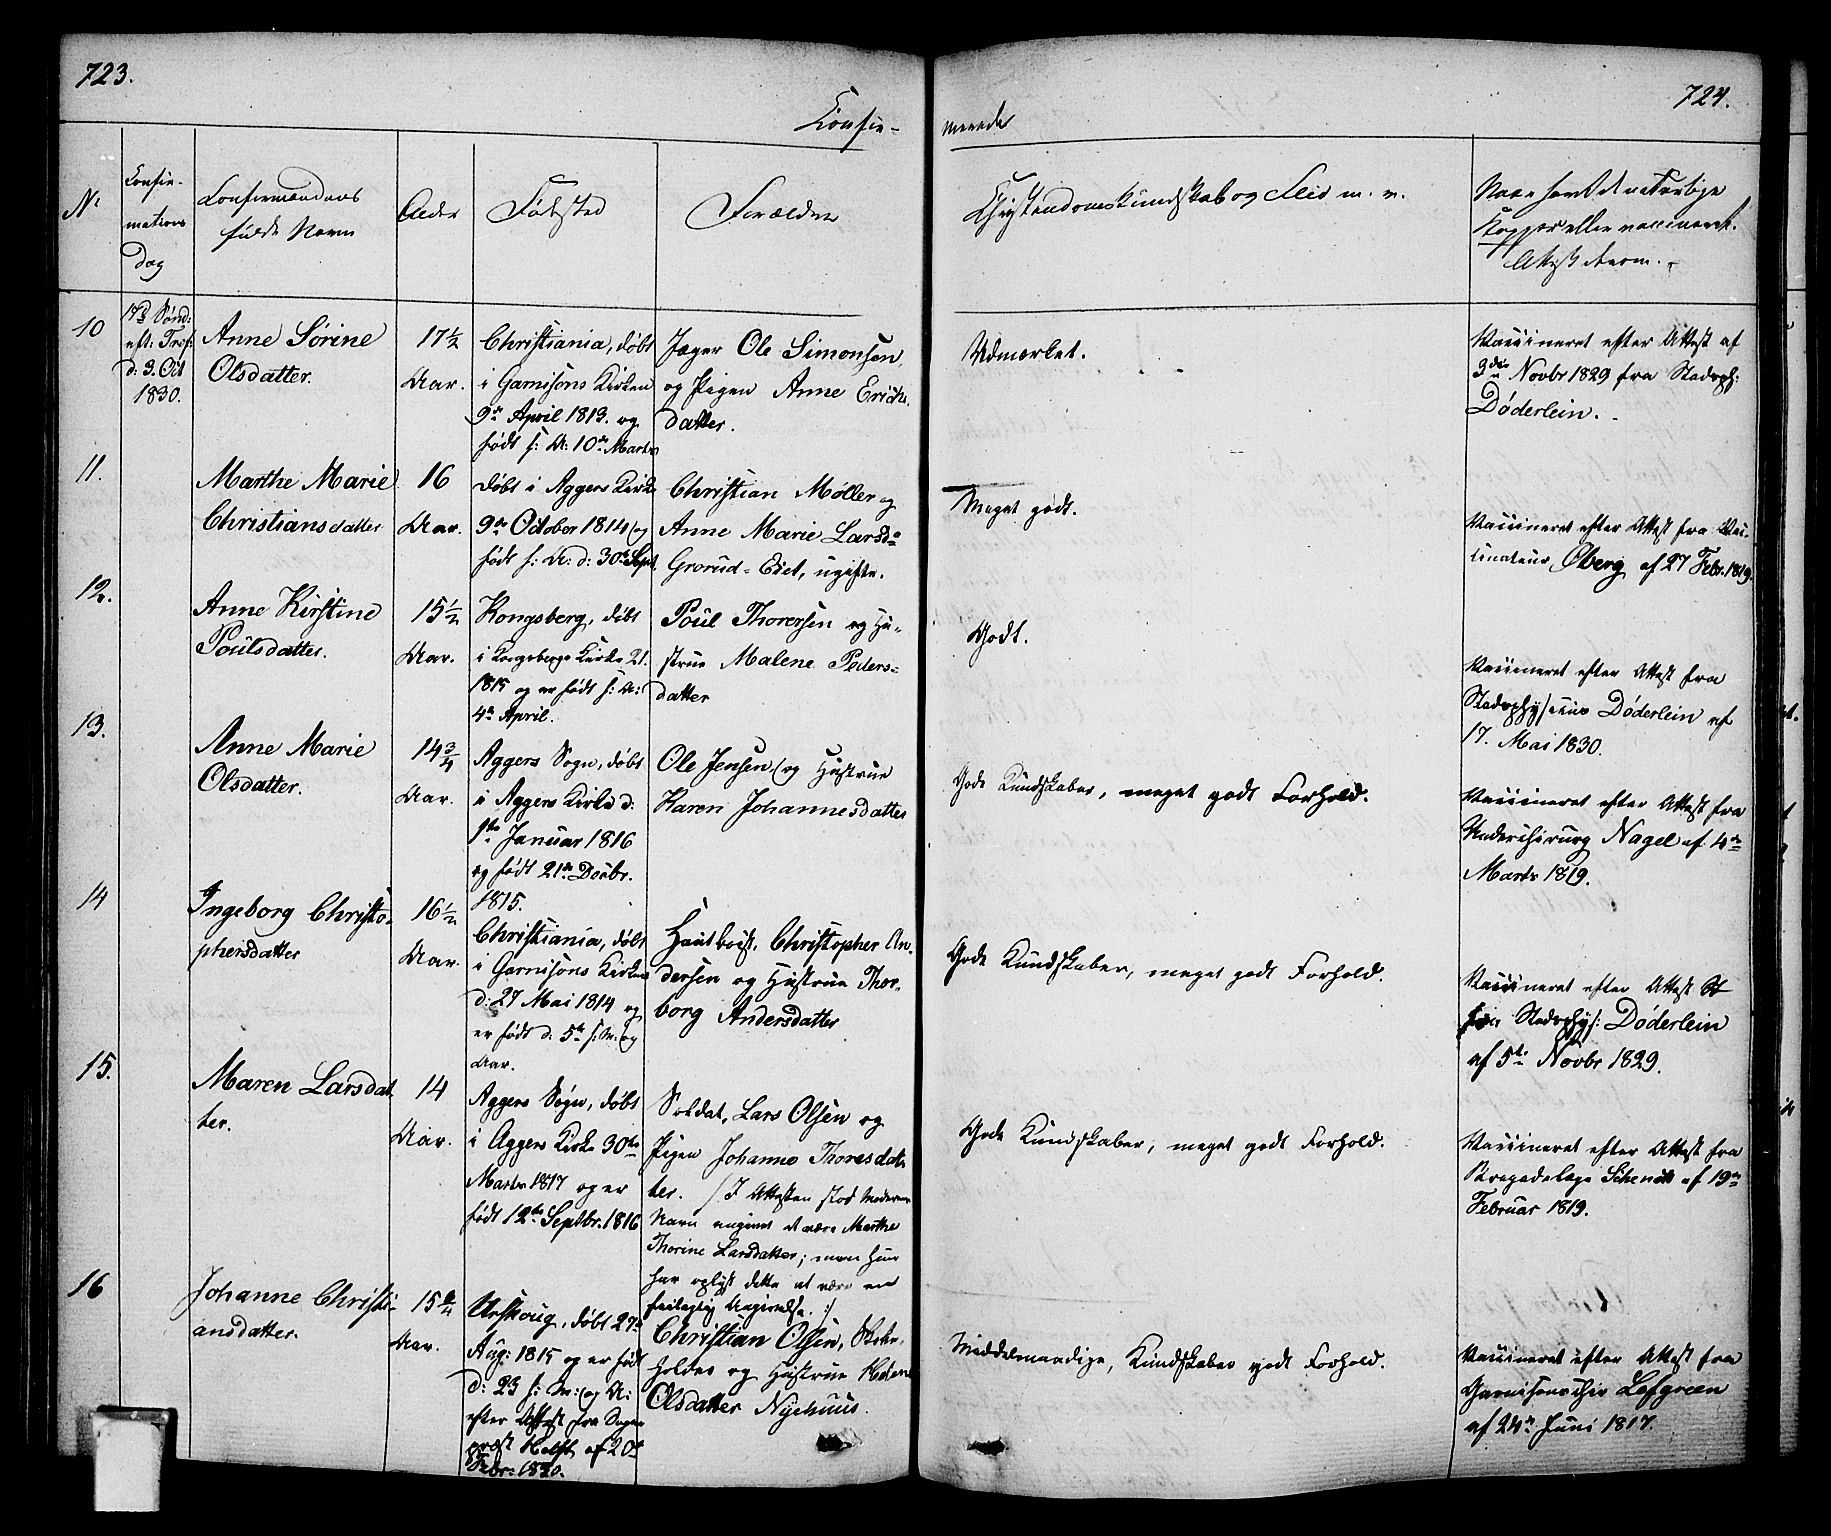 723.
724.
Confir-
merede
No
Confir-
mations
Dag
Confirmandens
fulde Navn
Alder
Fødested
Forældre
Christendomskundskab og Flid m. v.
Naar havt de naturlige
Kopper eller vaccineret.
Attest derom.
10
17de Sønd:
eft: Tref:
d: 3. Oct
1830.
Anne Sørine
Olsdatter.
17½
Aar.
Christiania, døbt
i Garnisons Kirken
9de April 1813. og
født s: A: 10de Marts
Jæger Ole Simonsen,
og Pigen Anne Erichs
datter.
Udmærket.
Vaccineret efter Attest af
3die Novbr 1829 fra Stadsph:
Døderlein.
11.
Marthe Marie
Christiansdatter
16
Aar.
døbt i Aggers Kirke
9de October 1814 og
født s: A: d: 30te Sept.
Christian Møller og
Anne Marie Larsdr
Grorud-Eiet, ugifte.
Meget godt.
Vaccineret efter Attest fra Vac-
cinateur Øberg af 27 Febr. 1819.
12.
Anne Kirstine
Poulsdatter.
15½
Aar.
Kongsberg, døbt
i Kongsbergs Kirke 21.
1815 og er født s: A:
4de April.
Poul Thorersen og Hu-
strue Malene Peders-
datter
Godt.
Vaccineret efter Attest fra
Stadsphysicus Døderlein af
17. Mai 1830.
13.
Anne Marie
Olsdatter.
14¾
Aar.
Aggers Sogn, døbt
i Aggers Kirke d:
1ste Januar 1816
og født 21de Decbr.
1815.
Ole Jensen og Hustrue
Karen Johannesdatter
Gode Kundskaber, meget godt Forhold.
Vaccineret efter Attest fra
Underchirurg Nagel af 4de
Marts 1819.
14
Ingeborg Christo-
phersdatter
16½
Aar.
Christiania, døbt
i Garnisons Kirken
d: 27 Mai 1814 og
er født d: 5te s: M: og
Aar.
Hautboist, Christopher An-
dersen og Hustrue Thor-
borg Andersdatter
Gode Kundskaber, meget godt Forhold.
Vaccineret efter Attest
fra Stadsphys: Døderlein
af 5te Novbr 1829.
15.
Maren Larsdat
ter.
14
Aar.
Aggers Sogn, døbt
i Aggers Kirke 30te
Marts 1817 og er
født 12te Septbr. 1816
Soldat, Lars Olsen og
Pigen Johanne Thoresdat-
ter. /: I Attesten stod Moderens
Navn angivet at være Marthe
Thorine Larsdatter; men hun
har oplyst dette at være en
feilagtig Angivelse. :/
Gode Kundskaber, meget godt Forhold.
Vaccineret efter Attest fra
Brigadelæge Schenck af 19de
Februar 1819.
16
Johanne Christi-
ansdatter.
15
Aar.
Urskoug, døbt 27de
Aug: 1815 og er født
d: 23 s: M: og A:
efter Attest fra Sogne
præst Holst, af 20de
Febr: 1830.
Christian Olsen,
holder og Hustrue Helene
Olsdatter Nyehuus.
Middelmaadige, Kundskaber godt Forhold.
Vaccineret efter Attest fra
Garnisonschir Lofgreen
af 24de Juni 1817.